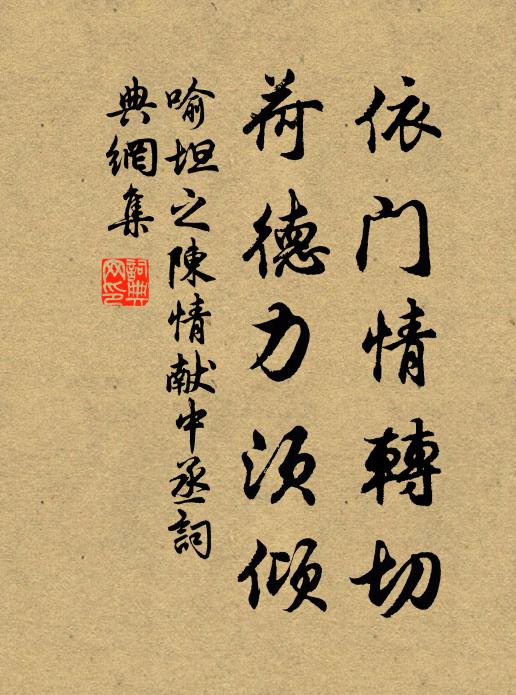 依门情轉切
荷德力须倾
喻坦之陳情献中丞詞
典網集
詞典網印